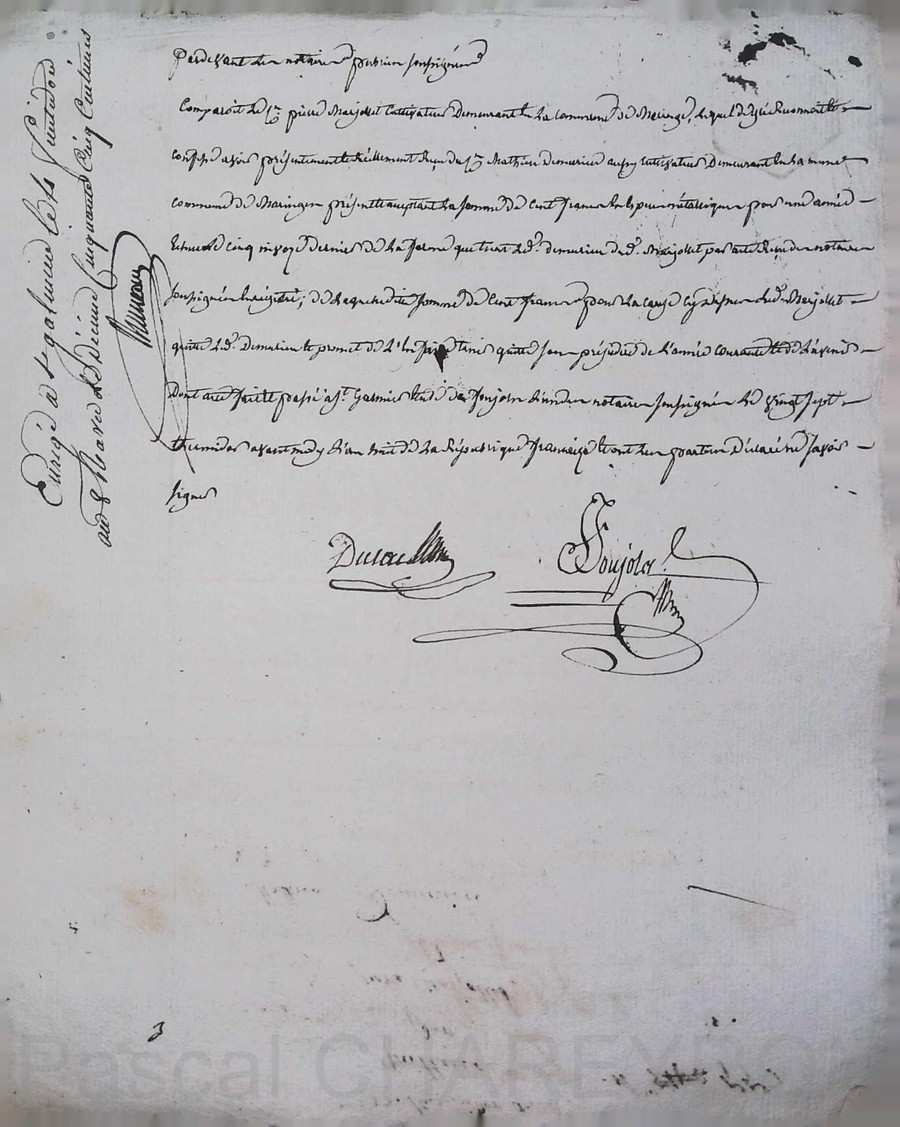 Pardevant les notaires publics soussignés
Comparoit le Cn pierre Marjollet Cultivateur Demeurant En la commune de Maringe, lequel de gré Reconnoit Et
confesse avoir présentement et réellement Reçu du Cn Mathieu Demurieu aussy Cultivateur Demeurant En la même
commune de Maringes présent et acceptant la somme de Cent francs En Espece métallique pour une année
Echue le Cinq derniers de la ferme que tient led. demurieu dud. Marjollet par acte Reçu des notaires
soussignés Enregistré; de laquelle ditte somme de Cent francs pour la cause cy dessus led. Marjollet
quitte led. Demurieu et promet de l'En faire tenir quitte sans préjudice de l'année courante Et de l'avenir
Dont acte fait et passé a St. Galmier Etude de Ponjola l'un des notaires soussignés le vingt sept
thermidor avant midy l'an huit de la République française Et ont les parties déclaré ne savoir
signer
Ponjola
Enrgé a St galmier le
an 8 Reçu Cinquante Cinq Centimes
Pascal CHAREYRON